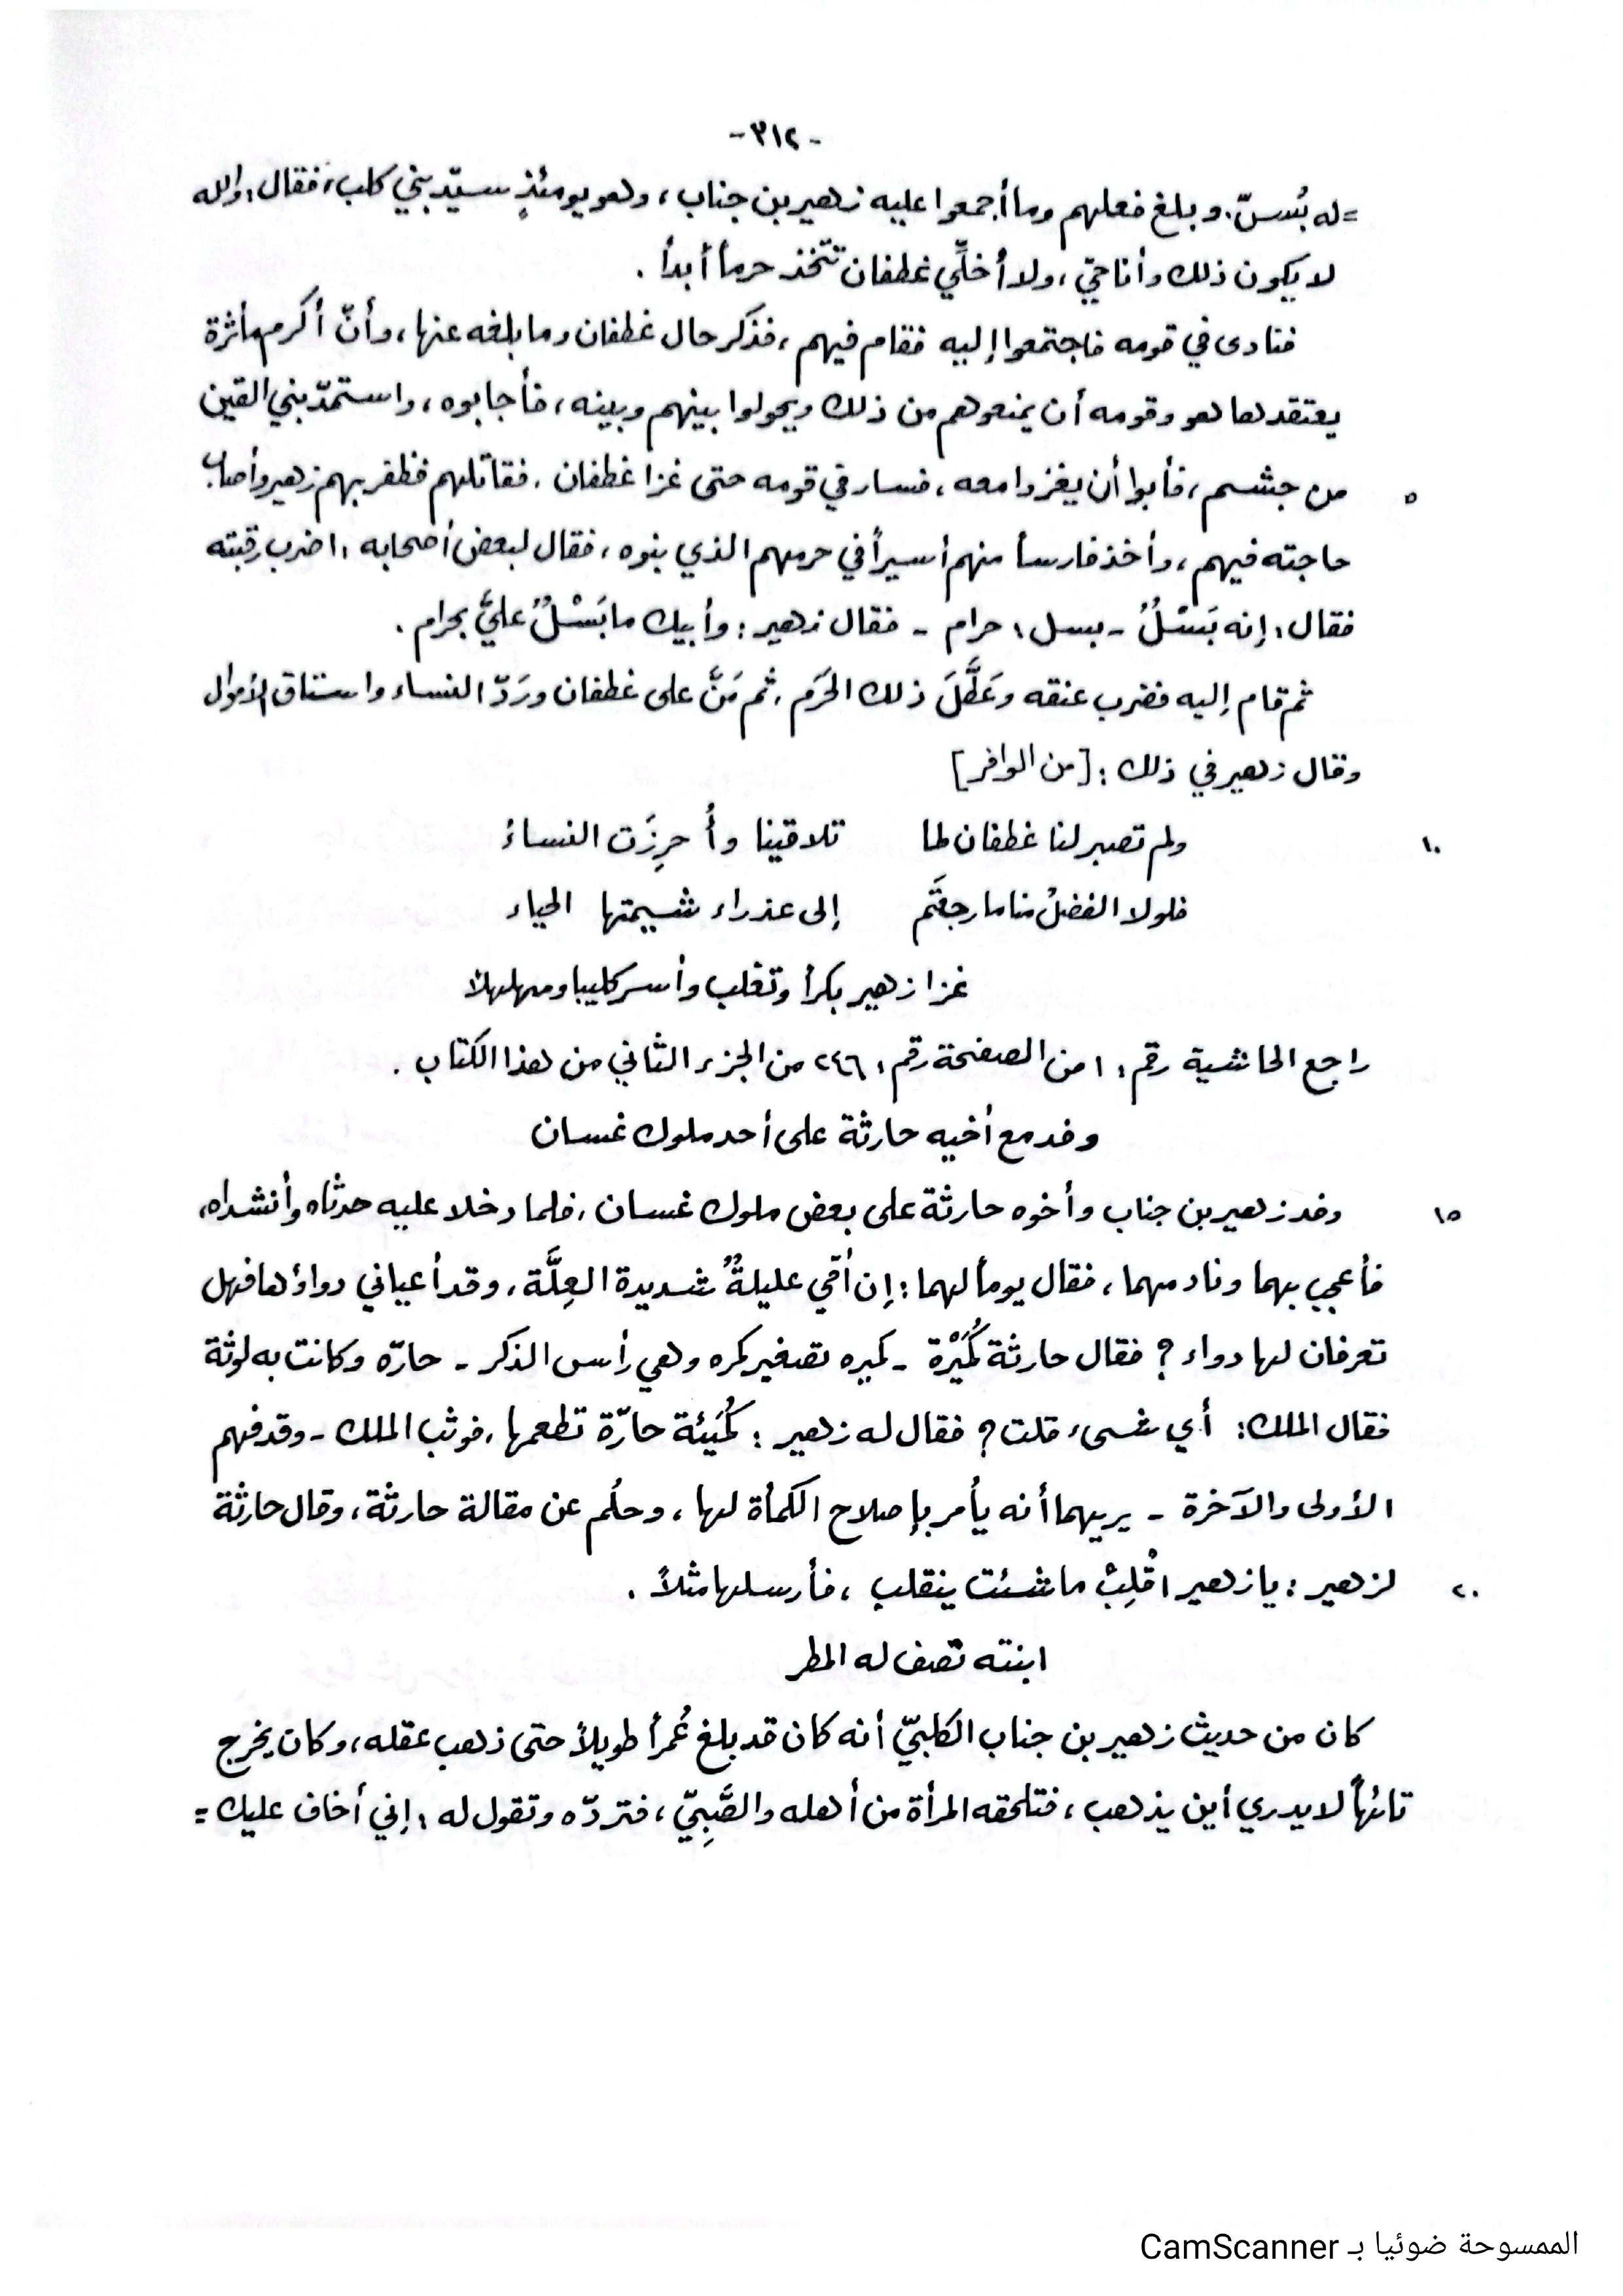 -٣١٢-
=له بُسسّ. وبلغ فعلهم وما أجمعوا عليه زهير بن جناب، وهو يومئذٍ سيّد بني كلب، فقال: والله
لا يكون ذلك وأنا حيّ، ولا أُخلِّي غطفان تتّخذ حرماً أبداً .
فنادى في قومه فاجتمعوا إليه فقام فيهم ، فذكر حال غطفان وما بلغه عنها ، وأنّ أكرم مأثرة
يعتقدها هو وقومه أن يمنعوهم من ذلك ويحولوا بينهم وبينه ، فأجابوه ، واستمدّ بني القين
٥ من جشم ، فأبوا أن يغزوا معه ، فسار في قومه حتى غزا غطفان . فقاتلهم فظفر بهم زهير وأصاب
حاجته فيهم ، وأخذ فارساً منهم أسيراً في حرمهم الذي بنوه ، فقال لبعض أصحابه : اضرب رقبته
فقال : إنه بَسْلٌ - بسل : حرام - فقال زهير : وأبيك ما بَسْلٌ عليَّ بحرام .
ثم قام إليه فضرب عنقه وعَطَّلَ ذلك الحَرَم . ثم مَنَّ على غطفان ورَدّ النساء واستاق الأموال
وقال زهير في ذلك : [من الوافر]
١٠ ولم تصبر لنا غطفان لما تلاقينا وأُحرِزَت النساءُ
فلولا الفضلُ منا ما رجعتَم إلى عذراء شيمتها الحياء
غزا زهير بكراً وتغلب وأسر كليبا ومهلهلاً
راجع الحاشية رقم : ١ من الصفحة رقم : ٢٤٦ من الجزء الثاني من هذا الكتاب .
وفد مع أخيه حارثة على أحد ملوك غسان
١٥ وفد زهير بن جناب وأخوه حارثة على بعض ملوك غسان . فلما دخلا عليه حدثاه وأنشداه،
فأعجب بهما ونادمهما ، فقال يوماً لهما : إن أمّي عليلةٌ شديدة العِلَّة ، وقد أعياني دواؤها فهل
تعرفان لها دواء ؟ فقال حارثة كُمَيْرة - كميره تصغير كمره وهي رأس الذكر - حارّه وكانت به لوثة
فقال الملك : أي شيء قلت ؟ فقال له زهير : كُمَيئة حارّة تطعمها . فوثب الملك - وقد فهم
الأولى والآخرة - يريهما أنه يأمر بإصلاح الكمأة لها ، وحلُم عن مقالة حارثة ، وقال حارثة
٢٠ لزهير : يا زهير اقْلِبْ ما شئت ينقلب ، فأرسلها مثلاً .
ابنته تصف له المطر
كان من حديث زهير بن جناب الكلبيّ أنه كان قد بلغ عُمراً طويلاً حتى ذهب عقله ، وكان يخرج
تائهاً لا يدري أين يذهب ، فتلحقه المرأة من أهله والصَّبِيّ ، فتردّه وتقول له : إني أخاف عليك =
الممسوحة ضوئيا بـ CamScanner